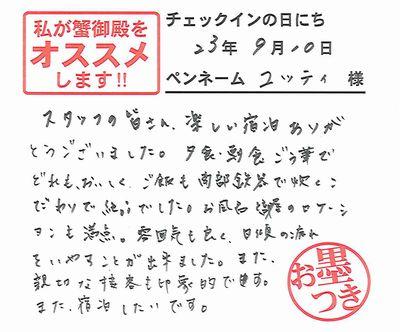 私が蟹御殿を
オススメ
します!!
チェックインの日にち
23年9月10日
ペンネーム ユッティ 様
スタッフの皆さん、楽しい宿泊ありが
とうございました。夕食・朝食ごう華で
どれも、おいしく、ご飯も南部鉄器で炊くこ
だわりで絶品でした。お風呂 部屋のロケーシ
ョンも満点。雰囲気も良く、日頃の疲れ
をいやすことが出来ました。また、
親切な接客も印象的です。
また、宿泊したいです。
お墨
つき